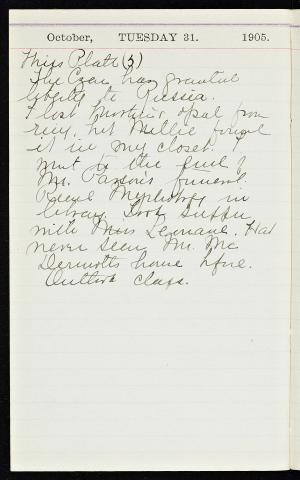 October, TUESDAY 31. 1905.
Miss Platt (3)
The Czar has granted
liberty to Russia.
I lost opal from
ring, but Nellie found
it in my closet. I
went to the
Mr. Parson's funeral
in
library. Took supper
with Miss Leonard. Had
never seen Mr. Mc
Dermott's home before.
Outlook class.